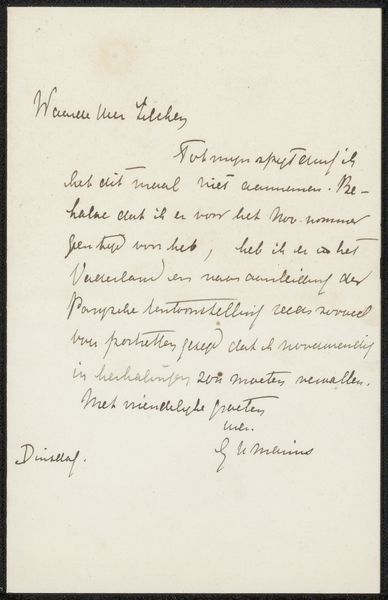 Waarde Heer Zilcken
Tot mijn spijt durf ik
het dit maal niet aannemen. Be-
halve dat ik er voor het Nov. nommer
geen tijd voor heb, heb ik er in het
Vaderland en naar aanleiding der
Parijsche tentoonstelling reeds zooveel
van portretten gezegd dat ik noodwendig
in herhalingen zou moeten vervallen.
Met vriendelijke groeten
G H Marius
Dinsdag.